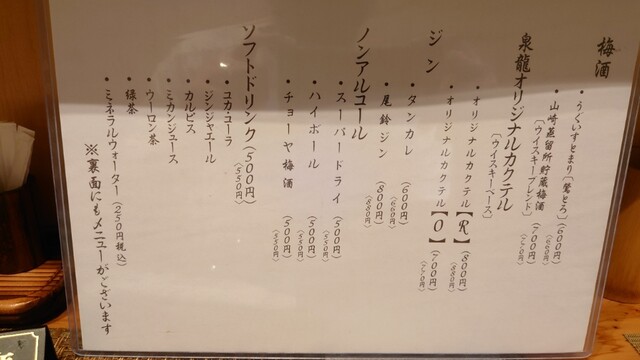 梅酒
・うぐいすとまり〔鶯とろ〕(600円)
〈660円〉
・山崎蒸留所貯蔵梅酒
〔ウイスキーブレンド〕(700円)
〈770円〉
泉龍オリジナルカクテル
〔ウイスキーベース〕
・オリジナルカクテル【R】(800円)
〈880円〉
・オリジナルカクテル【O】(700円)
〈770円〉
ジン
・タンカレ (600円)
〈660円〉
・尾鈴ジン (800円)
〈880円〉
ノンアルコール
・スーパードライ (500円)
〈550円〉
・ハイボール (500円)
〈550円〉
・チョーヤ梅酒 (500円)
〈550円〉
ソフトドリンク(500円)
〈550円〉
・コカ・コーラ
・ジンジャエール
・カルピス
・ミカンジュース
・ウーロン茶
・緑茶
・ミネラルウォーター(250円税込)
※裏面にもメニューがございます